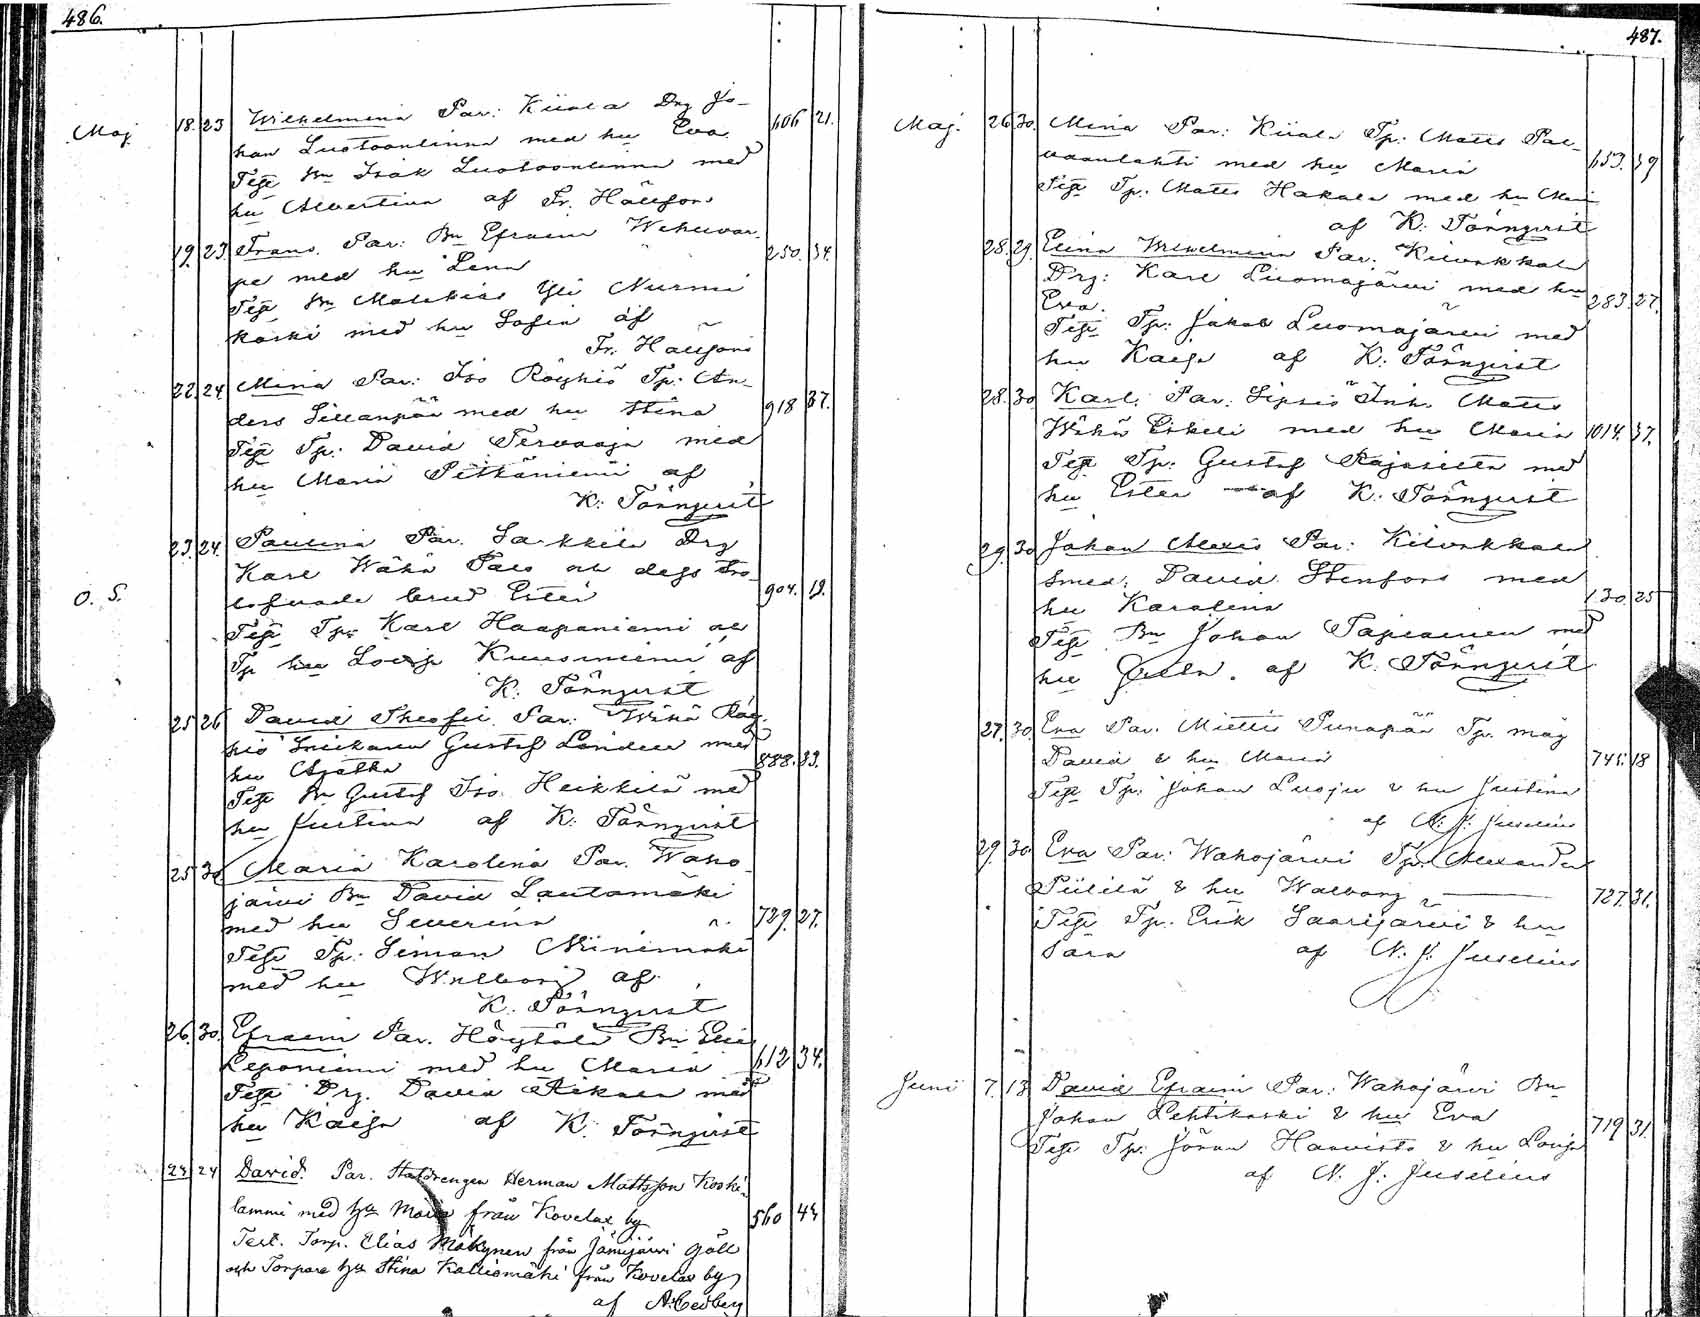 486.
Maj 18. 23 Wilhelmina Par: Kiiala Drg Jo- 606 21.
han Luotoonlinna med hu Eva.
Tegt Bn Isak Luotoonlinna med
hu Albertina af Fr. Hällfors
19. 23. Frans. Par: Bn Efraim Wehuvar- 250. 34.
pe med hu Lena
Tegt Bn Matthias Yli Nurmi
koski med hu Sofia af
Fr. Hällfors
22. 24. Mina Par: Iso Röyhiö Tp: An-
ders Sillanpää med hu Stina 918 37.
Tegt Tp: David Tervaoja med
hu Maria Pitkäniemi af
K. Törnqvist
23. 24. Paulina Par. Sarkkila Drg
Karl Wähä Paes och dess tro-
O. S. lofvade brud Ester 904. 19.
Tegt Tp: Karl Haapaniemi och
Tp hu Lovisa Kuusiniemi af
K. Törnqvist
25 26 David Theofil. Par: Wähä Röy-
hiö Snickaren Gustaf Linden med
hu Agatha 888. 33.
Tegt Bn Gustaf Iso Heikkilä med
hu Justina af K: Törnqvist
25 30 Maria Karolina Par. Waho
järvi Bn David Lautamäki
med hu Severina 729. 27.
Tegt Tp: Simon Niinimäki
med hu Walborg af
K. Törnqvist
26. 30. Efraim Par. Höytölä Bn Elias
Leponiemi med hu Maria 612 34.
Tegt Drg. David Rikala med
hu Kaisa af K: Törnqvist
23 24 David. Par. Statdrengen Herman Mattsson Koski-
lammi med hu Maria från Kovelax by 560 44
Test. Torp. Elias Mäkynen från Jämijärvi Göll
och Torpare hu Stina Kalliomäki från Kovelax by
af A. Cedberg
487.
Maj. 26 30. Mina Par: Kiiala Tp: Matts Pal-
vaanlahti med hu Maria 653. 39
Tegt Tp. Matts Hakala med hu Mari
af K: Törnqvist
28. 29. Elina Wilhelmina Par. Kilvakkala
Drg: Karl Luomajärvi med hu
Eva. 283. 27.
Tegt Tp: Jakob Luomajärvi med
hu Kaisa af K. Törnqvist
28. 30 Karl. Par: Sipsiö Inh. Matts
Wähä Eskeli med hu Maria 1014. 37.
Tegt Tp: Gustaf Rajasilta med
hu Ester af K. Törnqvist
29. 30 Johan Alexis Par: Kilvakkala
Smed: David Stenfors med
hu Karolina 130. 25
Tegt Bn Johan Tapiainen med
hu Greta. af K. Törnqvist
27. 30. Eva Par. Miettis Punapää Tp. måg
David & hu Maria 745. 18
Tegt Tp: Johan Luoju & hu Justina
af N. J. Juselius
29. 30. Eva Par: Wahojärvi Tp: Alexander
Piililä & hu Walborg 727. 31.
Tegt Tp. Erik Saarijärvi & hu
Sara af N. J. Juselius
Juni 7. 13 David Efraim Par: Wahojärvi Bn
Johan Lehtikoski & hu Eva 719 31.
Tegt Tp: Jöran Haavisto & hu Lovisa
af N. J: Juselius